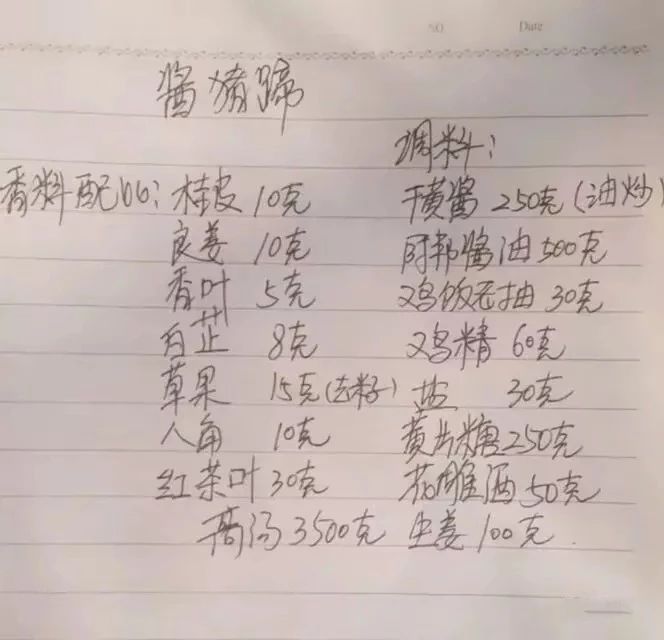 NO. Date
酱猪蹄
调料：
香料配比：桂皮 10克 干黄酱 250克（油炒）
良姜 10克 阿邦酱油 500克
香叶 5克 鸡饭老抽 30克
白芷 8克 鸡精 60克
草果 15克（去籽） 盐 30克
八角 10克 黄片糖 250克
红茶叶 30克 花雕酒 50克
高汤 3500克 生姜 100克